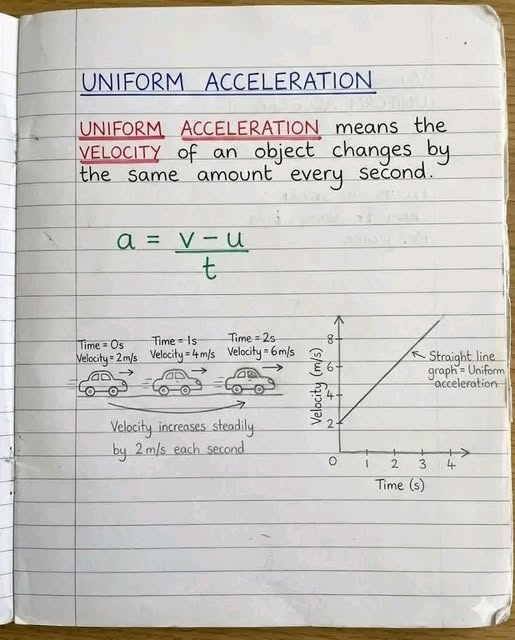 UNIFORM ACCELERATION
UNIFORM ACCELERATION means the
VELOCITY of an object changes by
the same amount every second.
a = v - u
t
Time = 0s
Velocity = 2m/s
Time = 1s
Velocity = 4m/s
Time = 2s
Velocity = 6m/s
Velocity increases steadily
by 2m/s each second
Velocity (m/s)
8
6
4
2
0 1 2 3 4
Time (s)
Straight line
graph = Uniform
acceleration